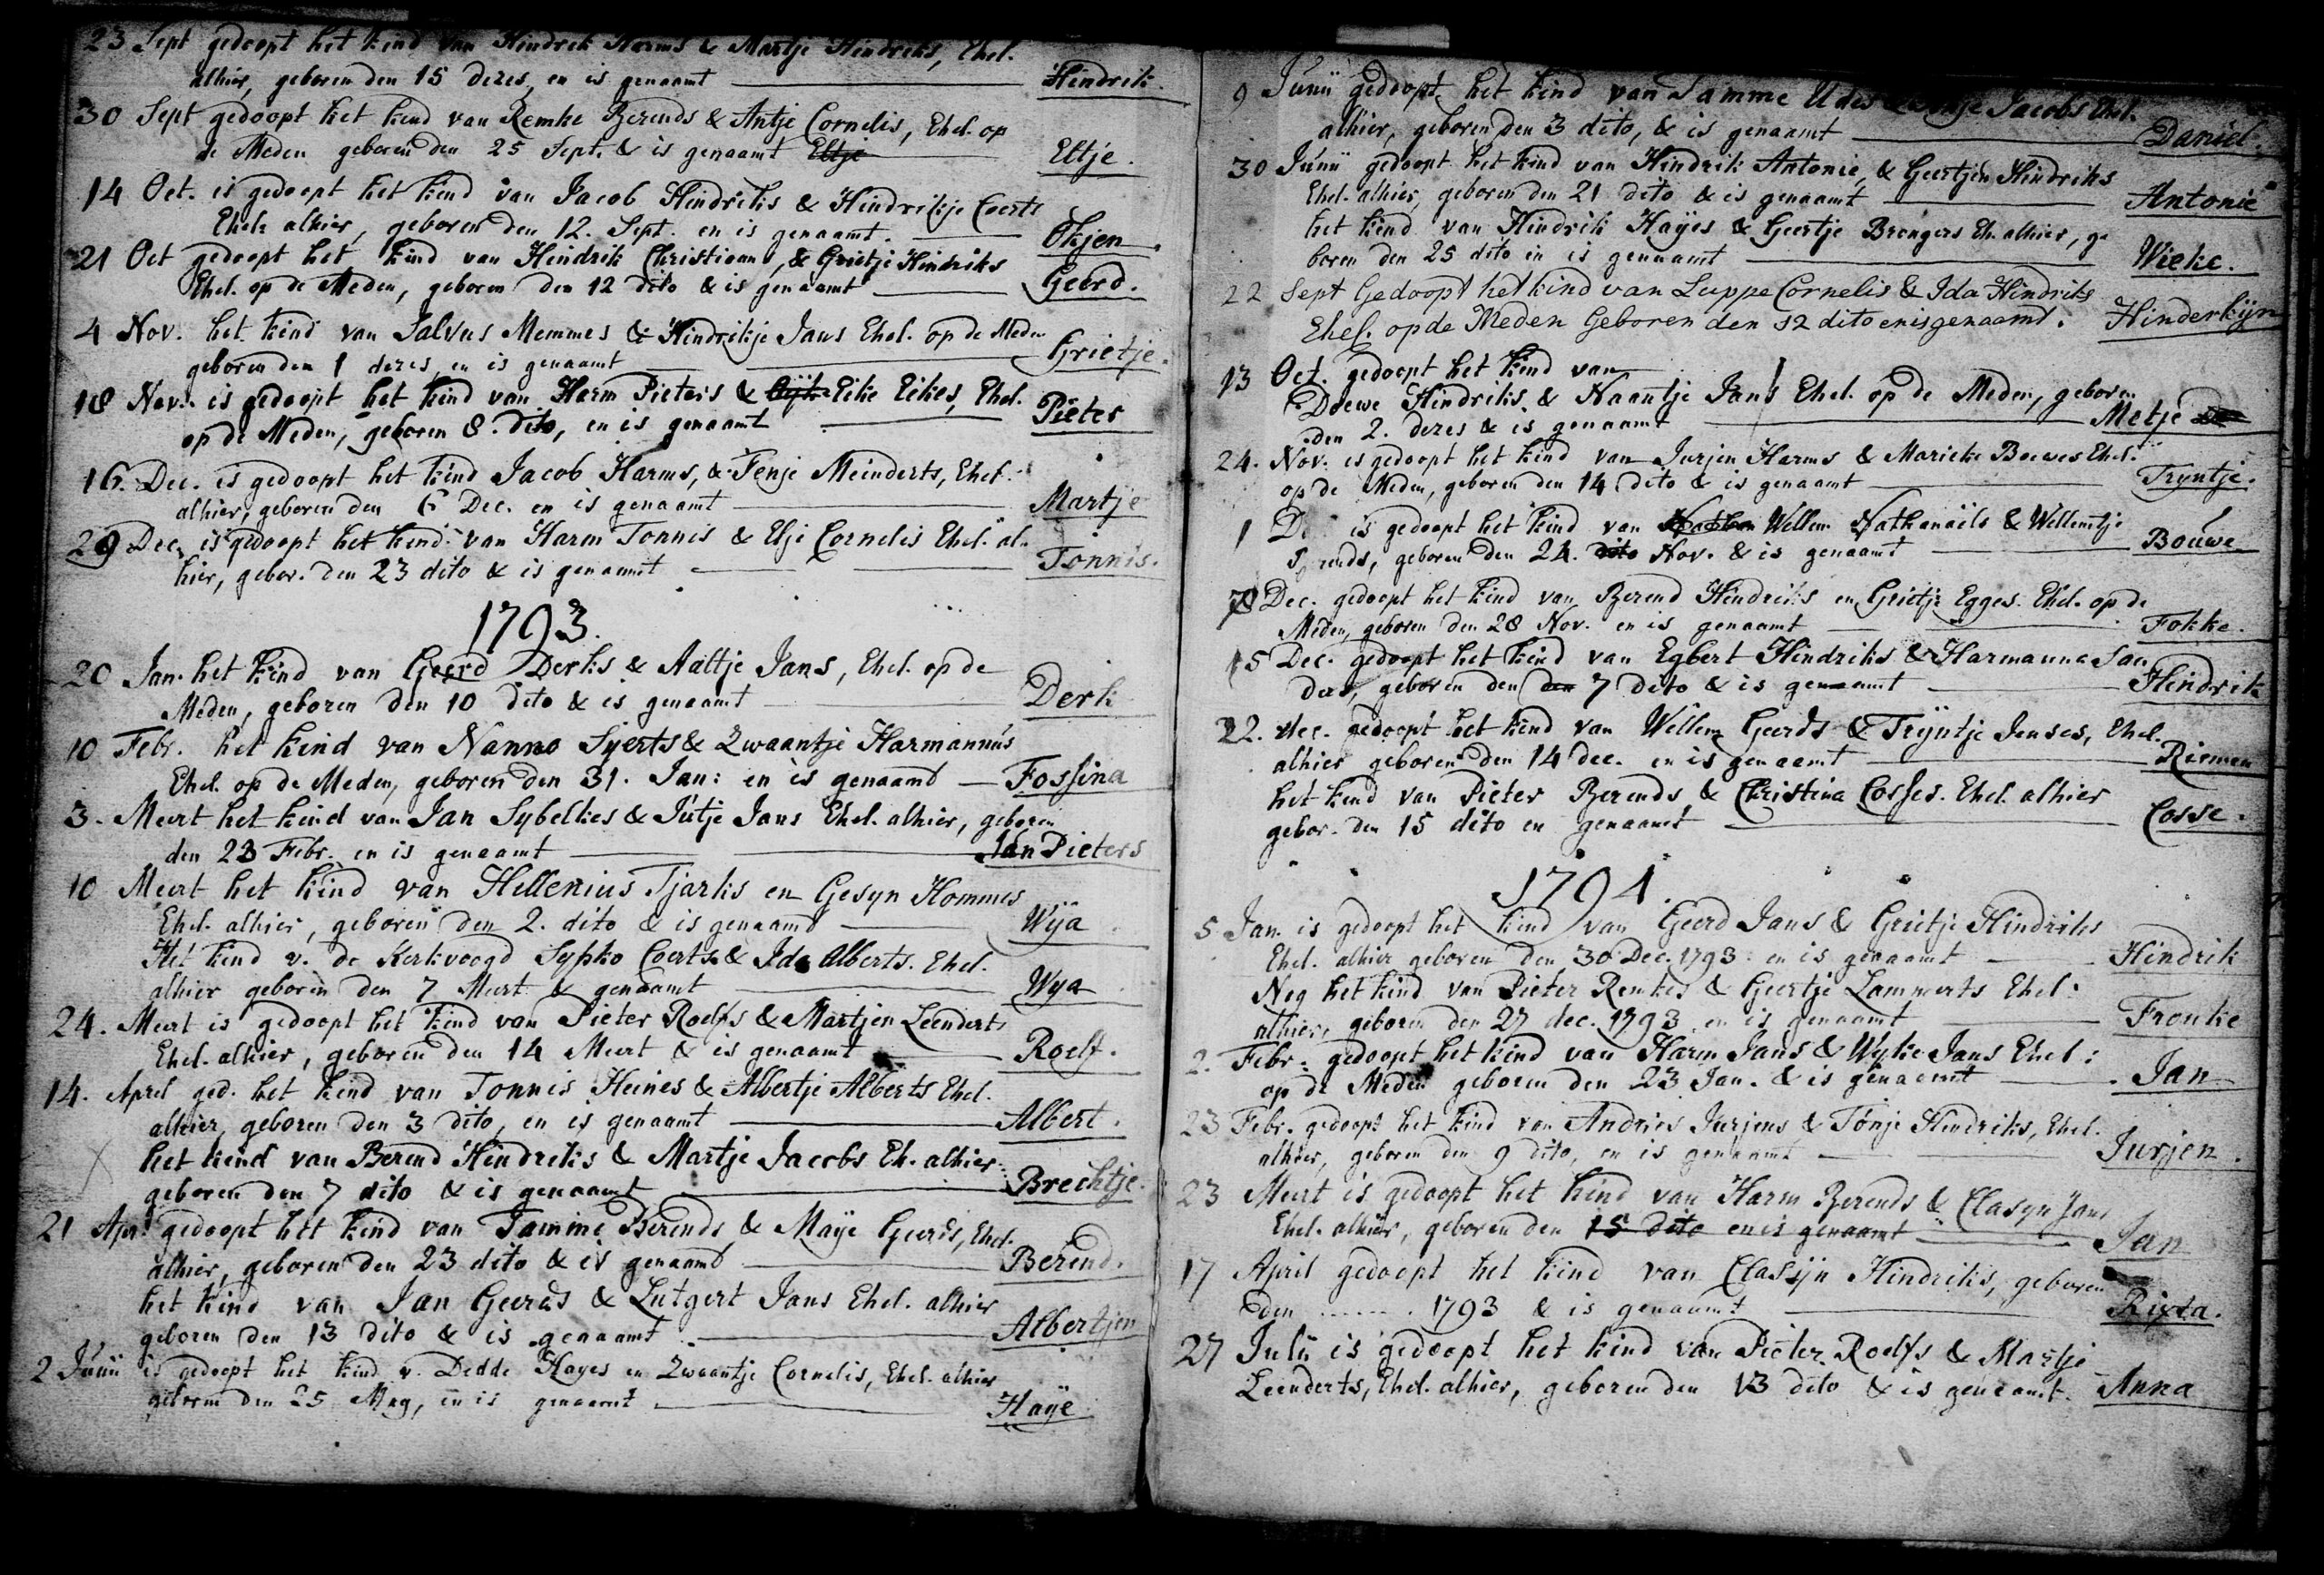 23 Sept gedoopt het kind van Hindrik Harms & Martje Hindriks, Ehel.
alhier, geboren den 15 dezes, en is genaamt Hindrik.
30 Sept gedoopt het kind van Remke Berends & Antje Cornelis, Ehel. op
de Meden geboren den 25 Sept. & is genaamt Eltje Eltje.
14 Oct. is gedoopt het kind van Jacob Hindriks & Hindrikje Coerts
Ehel: alhier, geboren den 12. Sept. en is genaamt. Okjen.
21 Oct gedoopt het kind van Hindrik Christiaans, & Grietje Hindriks
Ehel. op de Meden, geboren den 12 dito & is genaamt Geerd.
4 Nov. het kind van Jalvus Memmes & Hindrikje Jans Ehel. op de Meden
geboren den 1 dezes, en is genaamt Grietje.
18 Nov. is gedoopt het kind van Harm Pieters & Eike Eikes, Ehel.
op de Meden, geboren 8. dito, en is genaamt Pieter
16. Dec. is gedoopt het kind Jacob Harms, & Fenje Meinderts, Ehel.
alhier, geboren den 6 Dec. en is genaamt Martje
29 Dec. is gedoopt het kind van Harm Tonnis & Elje Cornelis Ehel. al-
hier, gebor. den 23 dito & is genaamt Tonnis.
1793.
20 Jan. het kind van Geerd Derks & Aaltje Jans, Ehel. op de
Meden, geboren den 10 dito & is genaamt Derk
10 Febr. het kind van Nanno Syerts & Zwaantje Harmannus
Ehel. op de Meden, geboren den 31. Jan: en is genaamd Fossina
3. Meert het kind van Jan Sybelkes & Jútje Jans Ehel. alhier, geboren
den 23 Febr. en is genaamt Jan Pieters
10 Meert het kind van Hellenius Tjarks en Gesyn Hommes
Ehel. alhier, geboren den 2. dito & is genaamd Wija
Het kind v. de Kerkvoogd Sypko Coerts & Ida Alberts. Ehel.
alhier geboren den 7 Meert & genaamt Wya
24. Meert is gedoopt het kind van Pieter Roelfs & Martjen Leenderts
Ehel. alhier, geboren den 14 Meert & is genaamt Roelf.
14. April ged. het kind van Tonnis Heines & Albertje Alberts Ehel.
alhier, geboren den 3 dito, en is genaamt Albert.
het kind van Berend Hindriks & Martje Jacobs Eh. alhier
geboren den 7 dito & is genaamt Brechtje.
21 Apr. gedoopt het kind van Tamme Berends & Maije Geerds, Ehel.
alhier, geboren den 23 dito & is genaamd Berend.
het kind van Jan Geerds & Lutgert Jans Ehel. alhier
geboren den 13 dito & is genaamt Albertjen
2 Junii is gedoopt het kind v. Dedde Hayes en Zwaantje Cornelis, Ehel. alhier
geboren den 25 May, en is genaamt Haye
9 Junii gedoopt het kind van Samme Udes & Jacobs Ehel.
alhier, geboren den 3 dito, & is genaamt Daniel.
30 Junii gedoopt het kind van Hindrik Antonie, & Geertjen Hindriks
Ehel. alhier, geboren den 21 dito & is genaamt Antonie
het kind van Hindrik Hayes & Geertje Brongers Eh. alhier, ge
boren den 25 dito en is genaamt Wieke.
22 Sept Gedoopt het kind van Luppe Cornelis & Ida Hindriks
Ehel. op de Meden Geboren den 12 dito en is genaamt. Hinderkijn
13 Oct. gedoopt het kind van
Doewe Hindriks & Naantje Jans Ehel. op de Meden, geboren
den 2. dezes & is genaamt Metje
24. Nov. is gedoopt het kind van Jurjen Harms & Marieke Boewes Ehel.
op de Meden, geboren den 14 dito & is genaamt Tryntje.
1 is gedoopt het kind van Willem Nathanaëls & Willemtje
geboren den 24. dito Nov. & is genaamt Bouwe
Dec. gedoopt het kind van Berend Hindriks en Grietje Egges. Ehel. op de
Meden, geboren den 28 Nov. en is genaamt Fokke.
15 Dec. gedoopt het kind van Egbert Hindriks & Harmanna San
ders, geboren den den 7 dito & is genaamt Hindrik
22. dec. gedoopt het kind van Willem Geerds & Tryntje Jenses, Ehel.
alhier geboren den 14 dec. en is genaamt Riemen
het kind van Pieter Berends & Christina Cosses. Ehel. alhier
gebor. den 15 dito en genaamt Cosse.
1794.
5 Jan. is gedoopt het kind van Geerd Jans & Grietje Hindriks
Ehel. alhier geboren den 30 Dec. 1793 en is genaamt Hindrik
Nog het kind van Pieter Remkes & Geertje Lammerts Ehel.
alhier, geboren den 27 dec. 1793 en is genaamt Frouke
2. Febr. gedoopt het kind van Harm Jans & Wyke Jans Ehel:
op de Meden geboren den 23 Jan. & is genaamt Jan
23 Febr. gedoopt het kind van Andries Jurjens & Tonje Hindriks, Ehel.
alhier, geboren den 9 dito, en is genaamt Jurjen.
23 Meert is gedoopt het kind van Harm Berends & Clasyn Jans
Ehel. alhier, geboren den 15 dito en is genaamt Jan
17 April gedoopt het kind van Clasijn Hindriks, geboren
den ....... 1793 & is genaamt Rixta.
27 Julii is gedoopt het kind van Pieter Roelfs & Martje
Leenderts, Ehel. alhier, geboren den 13 dito & is genaamt. Anna